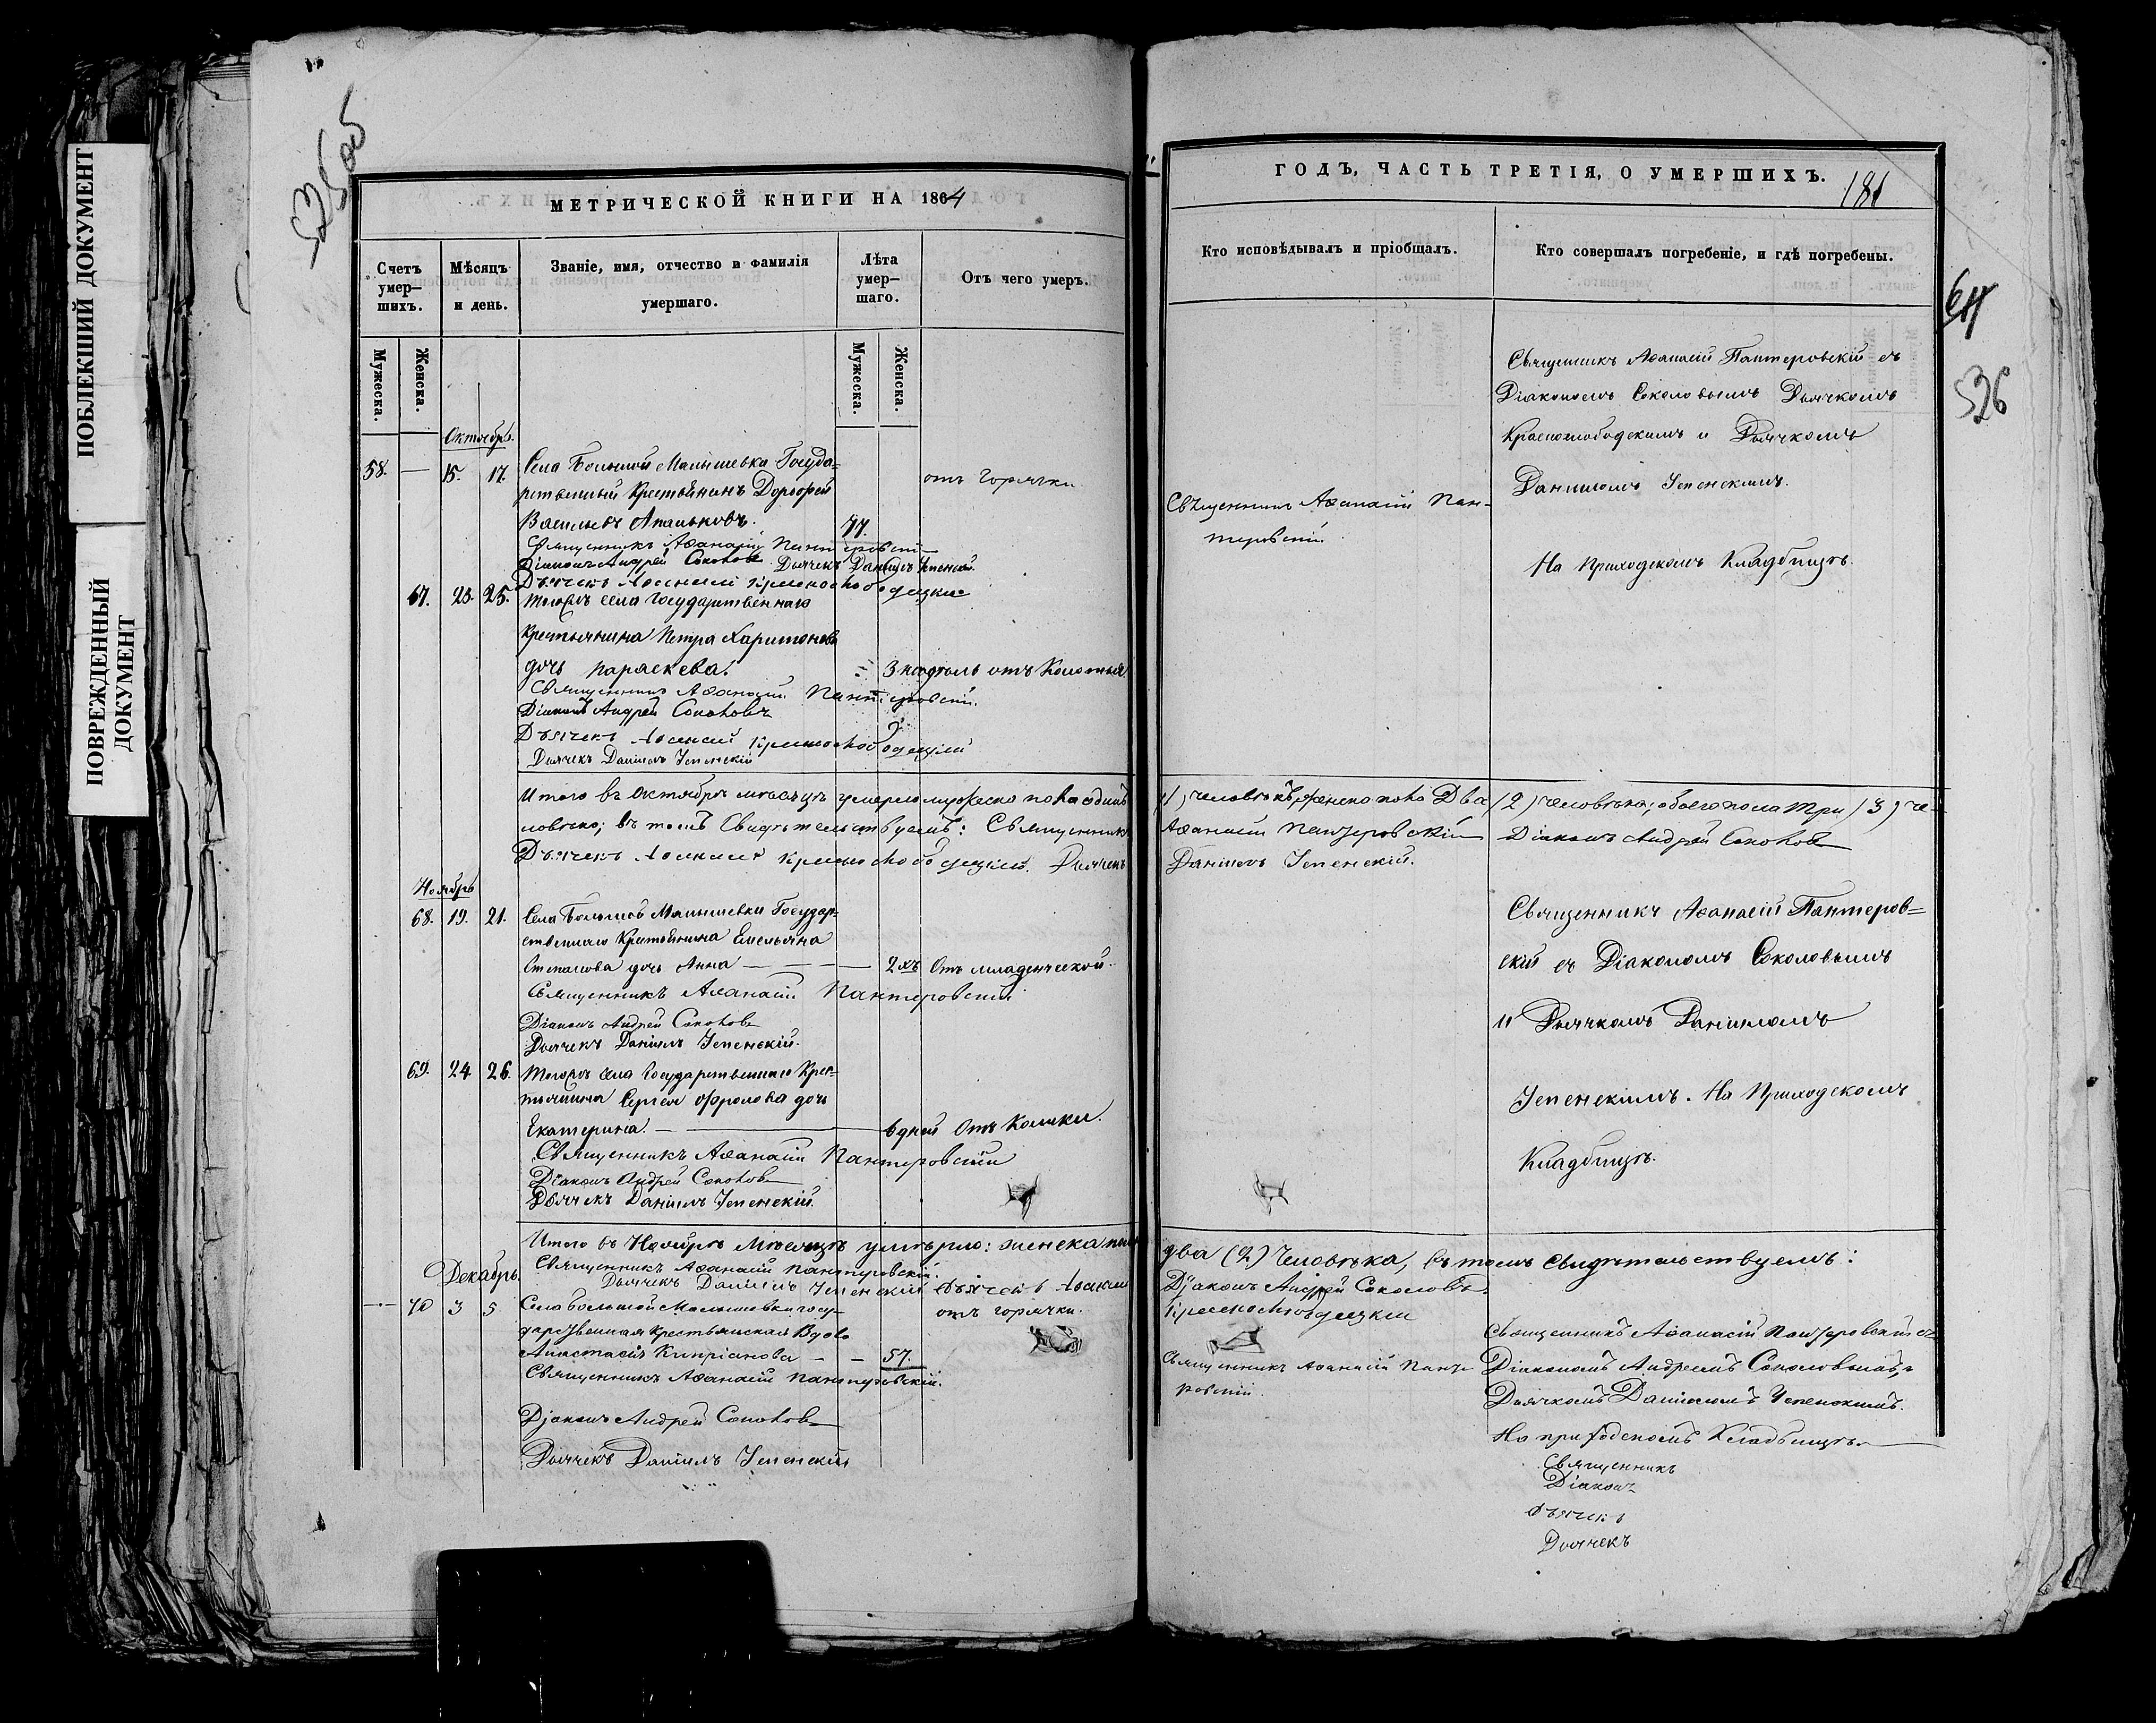 ПОБЛЕКШИЙ ДОКУМЕНТ
ПОВРЕЖДЕННЫЙ
ДОКУМЕНТ
МЕТРИЧЕСКОЙ КНИГИ НА 1864
Счетъ умер-шихъ.
Мѣсяцъ и день.
Званіе, имя, отчество и фамилія умершаго.
Лѣта умер-шаго.
Отъ чего умеръ.
Мужеска.
Женска.
Мужеска.
Женска.
Октябрь.
58. — 15. 17. Села Большой Малышевки Госуда-
рственный Крестьянинъ Дорофей
Васильевъ 77.
отъ горячки.
Священникъ Аѳанасій Пантеровскій
Діаконъ Андрей Соколовъ Дьячекъ Даніилъ Успенскій.
Дьячекъ Краснослободскій
67. 23. 25. Тогожъ села Государственнаго
Крестьянина Петра Харитонова
дочь Параскева. 3 недѣль отъ Колотья
Священникъ Аѳанасій Пантеровскій.
Діаконъ Андрей Соколовъ
Дьячекъ Краснослободскій
Дьячекъ Даніилъ Успенскій
Итого въ Октябрѣ мѣсяцѣ умерло мужеска пола одинъ
ловѣка; въ томъ Свидѣтельствуемъ: Священникъ
Дьячекъ Краснослободскій. Дьячекъ
Ноябрь
68. 19. 21. Села Большой Малышевки Государ-
ственнаго Крестьянина Емельяна
Степанова дочь Анна — — — 2 хъ Отъ младенческой.
Священникъ Аѳанасій Пантеровскій
Діаконъ Андрей Соколовъ
Дьячекъ Даніилъ Успенскій.
69. 24. 26. Тогожъ села Государственнаго Крес-
тьянина Сергея Фролова дочь
Екатерина. — 6 дней Отъ Колики.
Священникъ Аѳанасій Пантеровскій
Діаконъ Андрей Соколовъ
Дьячекъ Даніилъ Успенскій.
Итого въ Ноябрѣ Мѣсяцѣ умерло: женска пола
Священникъ Аѳанасій Пантеровскій.
Дьячекъ Даніилъ Успенскій Дьячекъ
Декабрь.
— 70 3 5. Села Большой Малышевки госу-
дарственная крестьянская Вдова
Анастасія Кипріанова — — 57.
отъ горячки.
Священникъ Аѳанасій Пантеровскій.
Діаконъ Андрей Соколовъ
Дьячекъ Даніилъ Успенскій
ГОДЪ, ЧАСТЬ ТРЕТІЯ, О УМЕРШИХЪ.
181
Кто исповѣдывалъ и пріобщалъ.
Кто совершалъ погребеніе, и гдѣ погребены.
526
Священникъ Аѳанасій Пан-
теровскій.
Священникъ Аѳанасій Пантеровскій съ
Діакономъ Соколовымъ Дьячкомъ
Краснослободскимъ и Дьячкомъ
Данииломъ Успенскимъ.
На Приходскомъ Кладбищѣ.
(1) человѣкъ, женска пола Два (2) человѣка; обоего пола три (3) че-
Аѳанасій Пантеровскій Діаконъ Андрей Соколовъ
Даніилъ Успенскій.
Священникъ Аѳанасій Пантеров-
скій съ Діакономъ Соколовымъ
и Дьячкомъ Данииломъ
Успенскимъ. На Приходскомъ
Кладбищѣ.
два (2) Человѣка, въ томъ свидѣтельствуемъ:
Діаконъ Андрей Соколовъ.
Краснослободскій
Священникъ Аѳанасій Панте-
ровскій.
Священникъ Аѳанасій Пантеровскій съ
Діакономъ Андреемъ Соколовымъ и
Дьячкомъ Даніиломъ Успенскимъ.
На приходскомъ Кладбищѣ.
Священникъ
Діаконъ
Дьячекъ
Дьячекъ